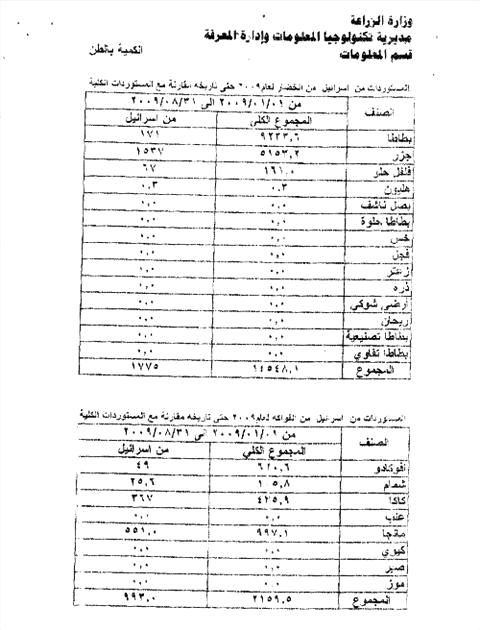 وزارة الزراعة
مديرية تكنولوجيا المعلومات وإدارة المعرفة
قسم المعلومات
الكمية بالطن
المستوردات من اسرائيل من الخضار لعام ٢٠٠٩ حتى تاريخه مقارنة مع المستوردات الكلية
الصنف من ٢٠٠٩/٠١/٠١ الى ٢٠٠٩/٠٨/٣١
المجموع الكلي من اسرائيل
بطاطا ٩٢٣٣,٦ ١٧١
جزر ٥١٥٣,٢ ١٥٣٧
فلفل حلو ١٦١,٠ ٦٧
هليون ٠,٣ ٠,٣
بصل ناشف ٠,٠ ٠,٠
بطاطا حلوة ٠,٠ ٠,٠
خس ٠,٠ ٠,٠
فجل ٠,٠ ٠,٠
زعتر ٠,٠ ٠,٠
ذره ٠,٠ ٠,٠
أرضي شوكي ٠,٠ ٠,٠
ريحان ٠,٠ ٠,٠
بطاطا تصنيعية ٠,٠ ٠,٠
بطاطا تقاوي ٠,٠ ٠,٠
المجموع ١٤٥٤٨,١ ١٧٧٥
المستوردات من اسرائيل من الفواكه لعام ٢٠٠٩ حتى تاريخه مقارنة مع المستوردات الكلية
الصنف من ٢٠٠٩/٠١/٠١ الى ٢٠٠٩/٠٨/٣١
المجموع الكلي من اسرائيل
أفوكادو ٤٩
شمام ٢٥,٦
كاكا ٤٢٥,٩ ٣٦٧
عنب ٠,٠ ٠,٠
مانجا ٩٩٧,١ ٥٥١,٠
كيوي ٠,٠ ٠,٠
صبر ٠,٠ ٠,٠
موز ٠,٠ ٠,٠
المجموع ٢١٥٩,٥ ٩٩٣,٠